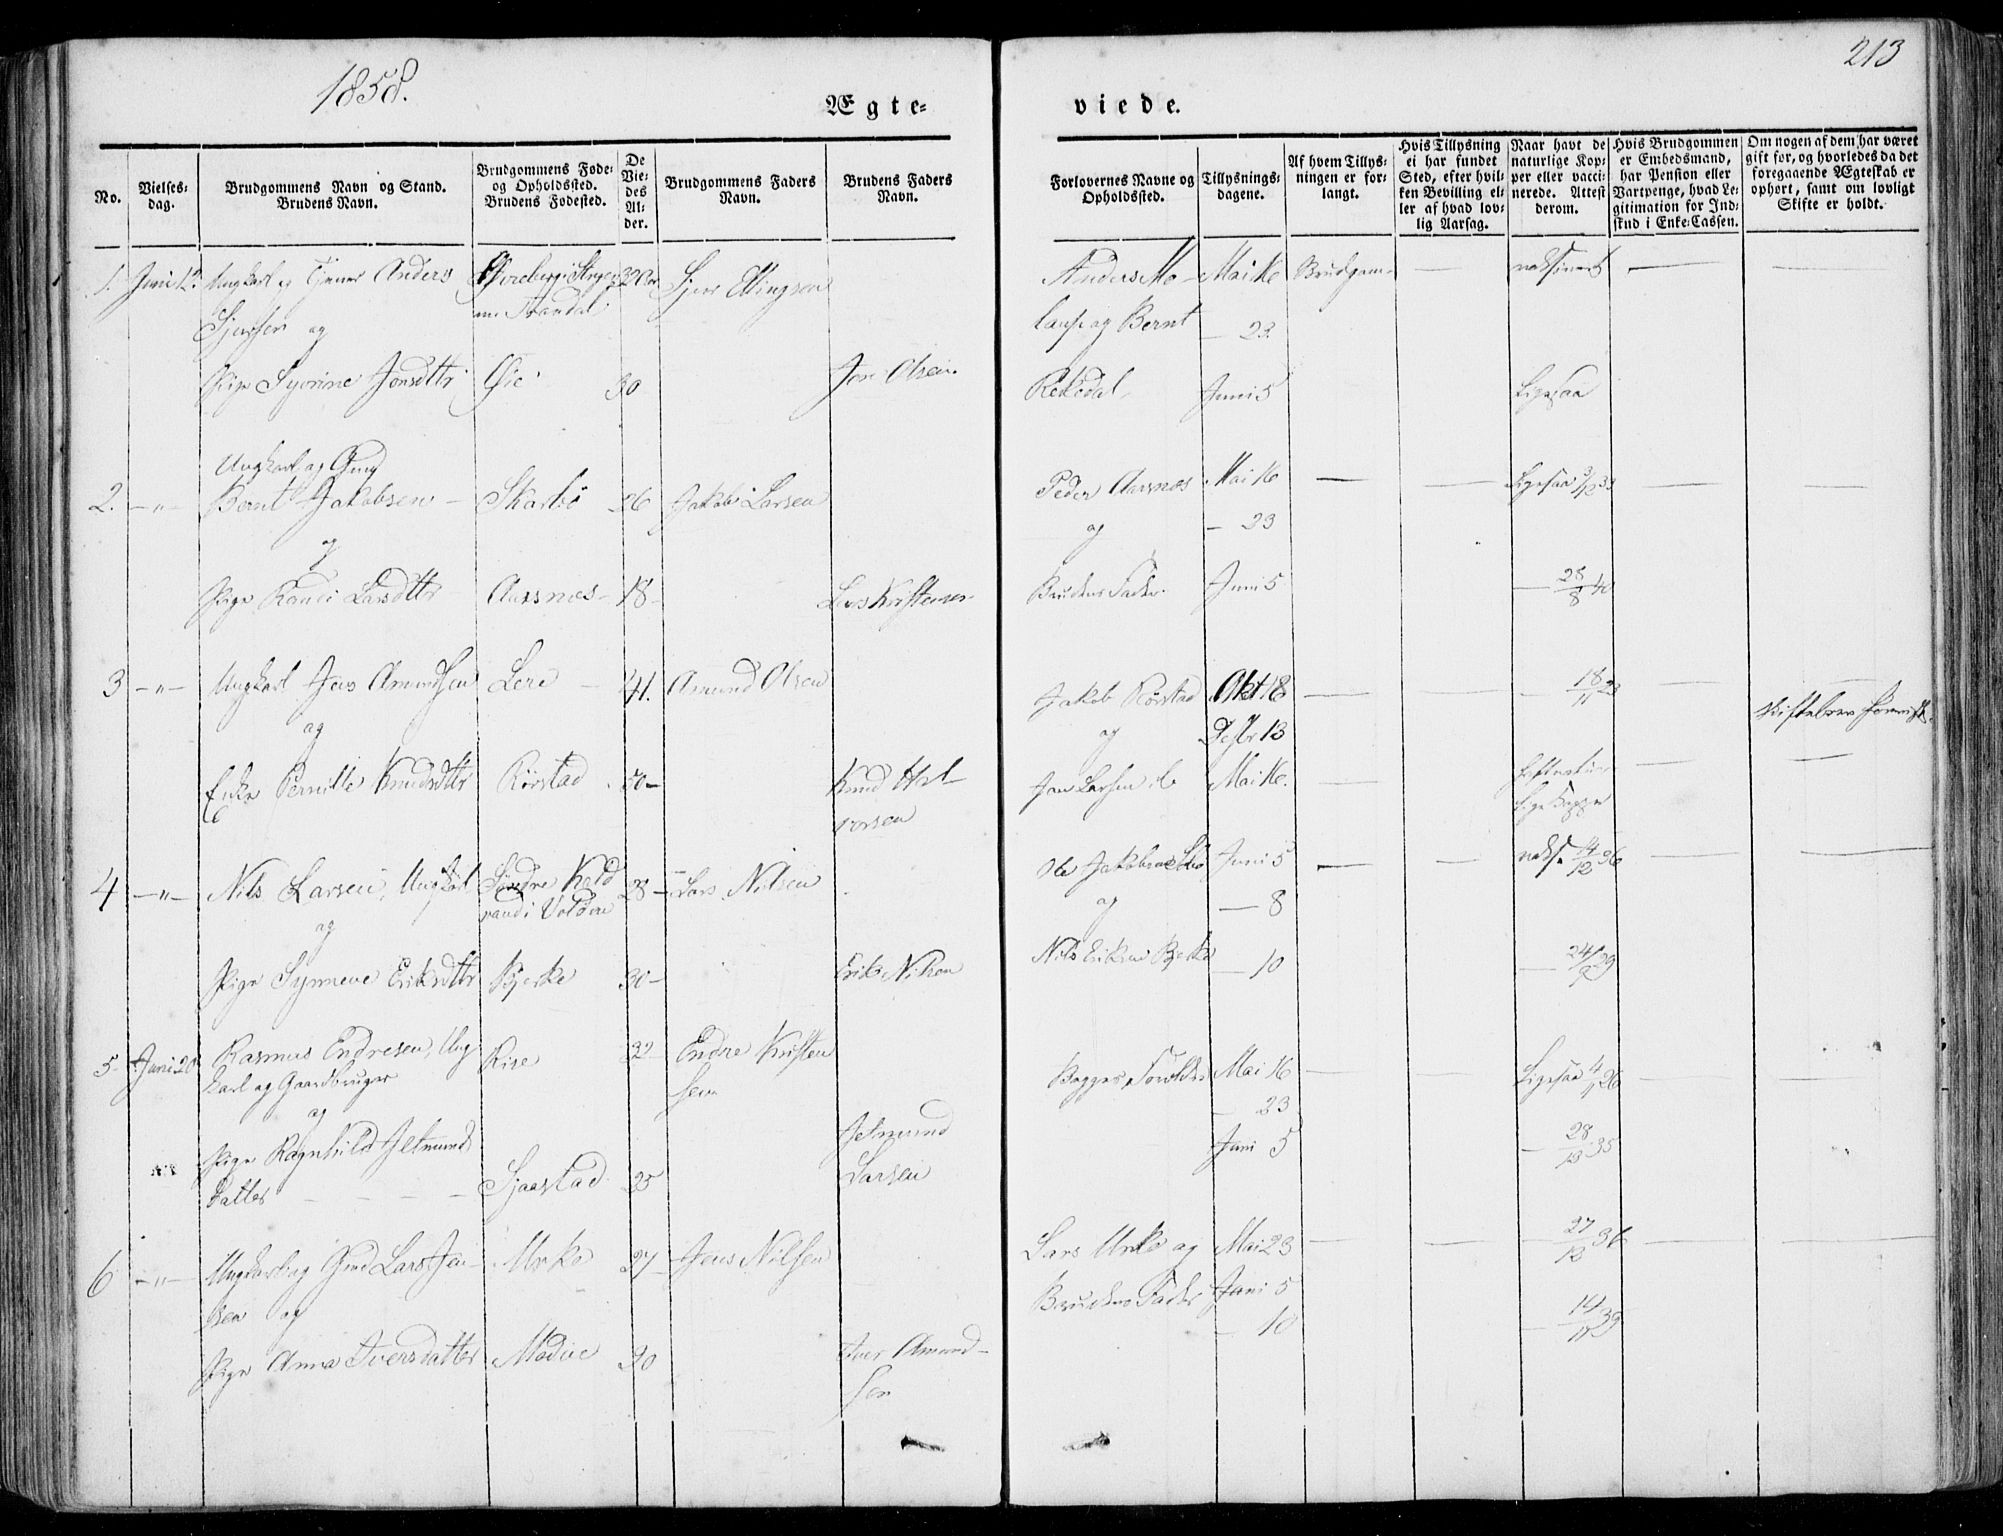 1858.
213
Ægte=
viede.
No.
Vielses=
dag.
Brudgommens Navn og Stand.
Brudens Navn.
Brudgommens Føde=
og Opholdssted.
Brudens Fødested.
De
Vie=
des
Al=
der.
Brudgommens Faders
Navn.
Brudens Faders
Navn.
Forlovernes Navne og
Opholdssted.
Tillysnings=
dagene.
Af hvem Tillys=
ningen er for=
langt.
Hvis Tillysning
ei har fundet
Sted, efter hvil=
ken Bevilling el=
ler af hvad lov=
lig Aarsag.
Naar havt de
naturlige Kop=
per eller vacci=
nerede. Attest
derom.
Hvis Brudgommen
er Embedsmand,
har Pension eller
Vartpenge, hvad Le=
gitimation for Ind=
skud i Enke=Cassen.
Om nogen af dem har været
gift før, og hvorledes da det
foregaaende Ægteskab er
ophørt, samt om lovligt
Skifte er holdt.
1. Juni 12. Ungkarl og Tjener Anders
Sjursen og
Pige Syvrine Jonsdttr Øie 30 Jon Olsen
Sjur Ellingsen
Anders Mo-
laup og Bernt
Rekkedal,
Mai 16
— 23
Juni 5
Brudgom-
vaksineret
Ligesaa
2. —"— Ungkarl og
Bernt Jakobsen — Skarbø 26 Jakob Larsen
og
Pige Randi Larsdttr Aarsnes 18 Lars Kristensen
Peder Aarsnes
og
Brudens Fader
Mai 16
— 23
Juni 5
Ligesaa 3/12 33
— 28/8 40
3 —"— Ungkarl Jens Amundsen Lere — 41. Amund Olsen
og
Enke Pernille Knudsdttr Rørstad 50 Knud Hal-
vorsen
Jakob Rørstad
og
Jon Larsen ib
Okt 18
Desbr 13
Mai 16.
— 18/11 23
4 —"— Nils Larsen, Ungkarl Søndre Kold
vand i Volden 28 — Lars Nilsen
og
Pige Synneve Eriksdttr Bjerke 30 — Erik Nilsen
Ole Jakobsen
og
Nils Eriksen Bjerke
Juni 5
— 8
— 10
vaks. 14/12 36
— 24/9 29
5 Juni 20 Rasmus Endresen, Ung
karl og Gaardbruger
og
Pige Ragnhild Jetmunds
datter — Sjaastad 25
Rise 32 Endre Kristen
sen
Jetmund
Larsen
Mai 16
— 23
Juni 5
Ligesaa 4/1 26
— 28/13 35
6 —"— Ungkarl og Lars Jen-
sen og
Pige Anna Iversdatter Modive 20
Urke 27 — Jens Nilsen
Iver Amund-
sen
Lars Urke og
Brudens Fader
Mai 23
Juni 5
— 10
27/12 36
— 14/11 39